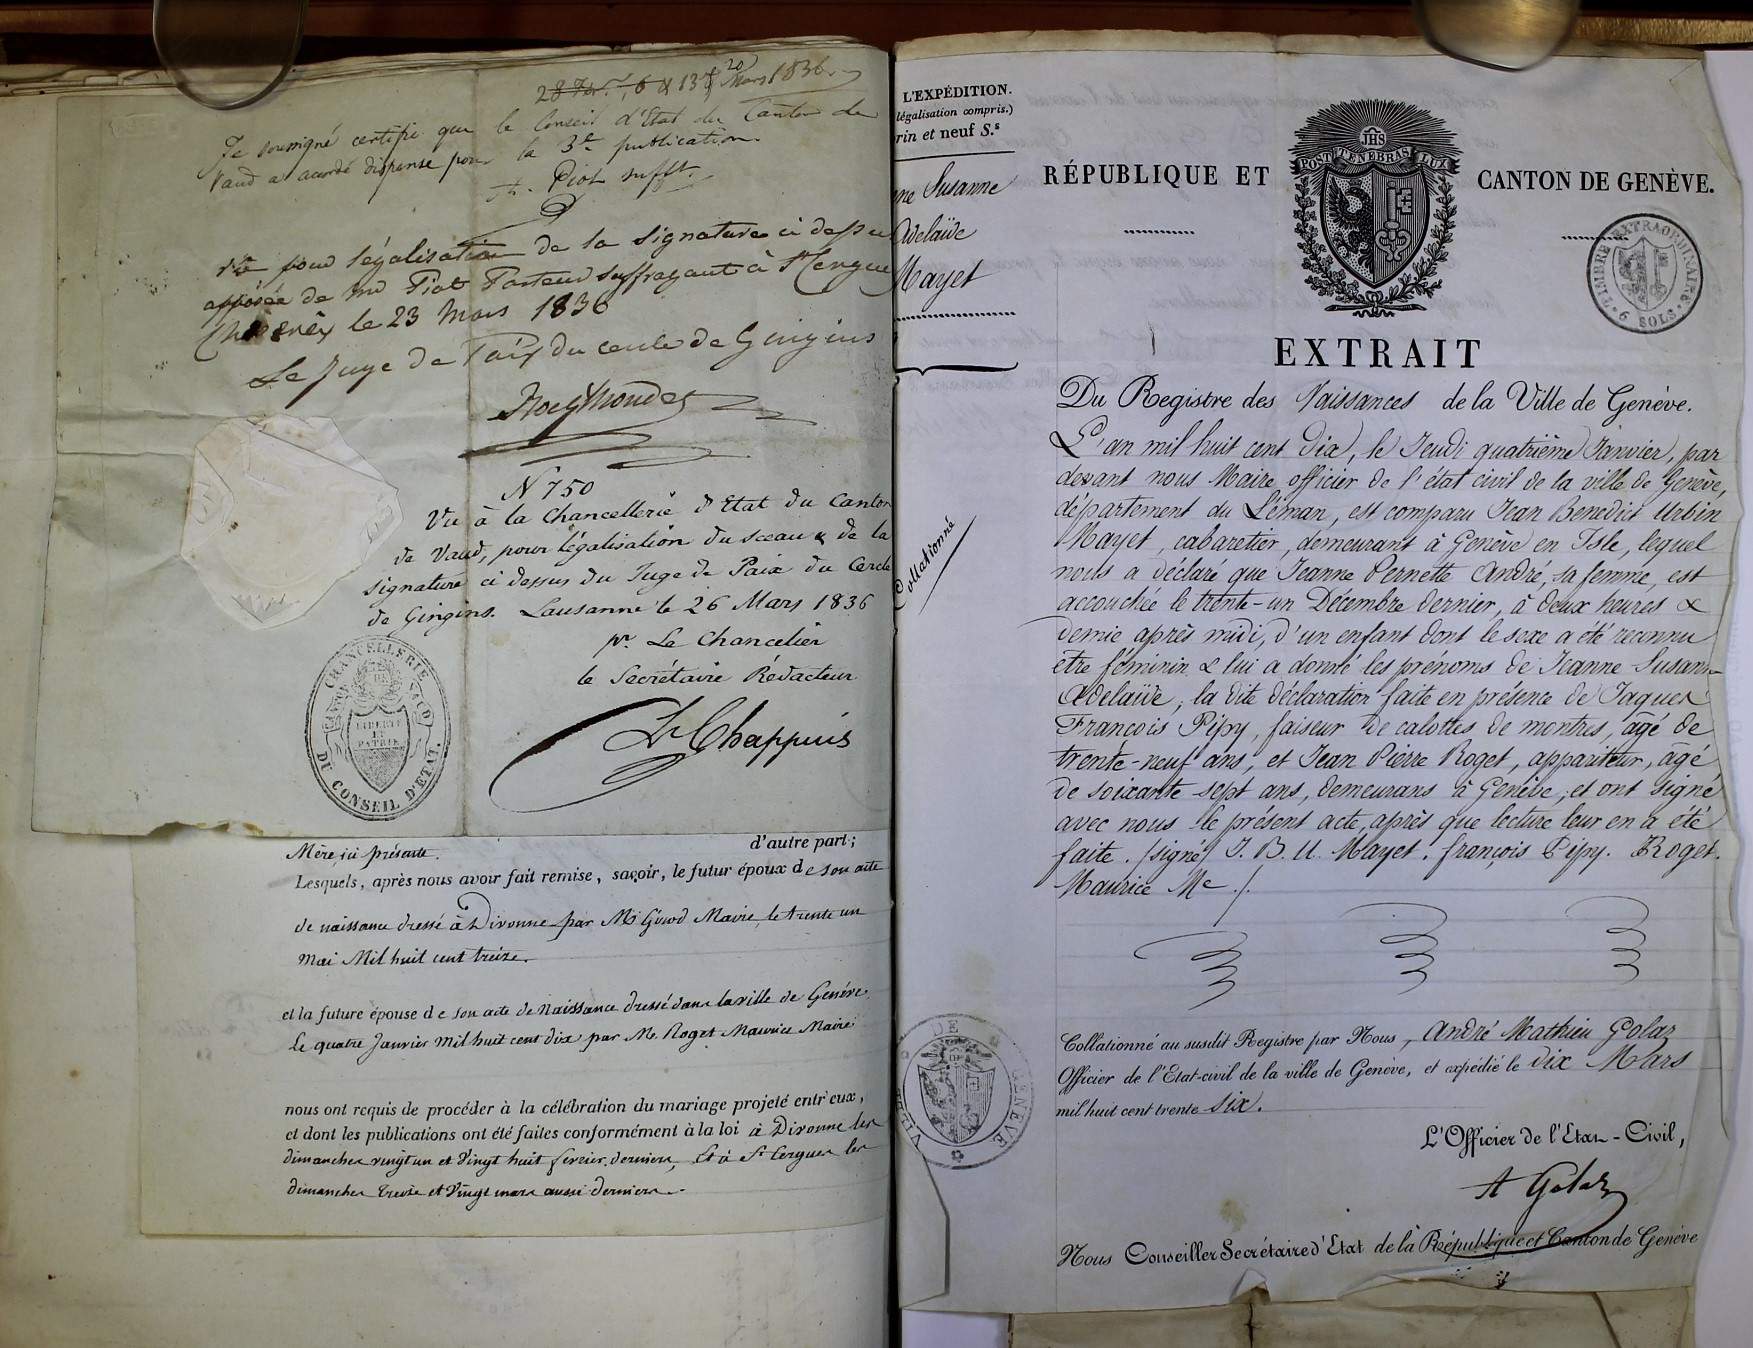 28 Fév.r, 6 & 13 & 20 Mars 1836.
Je soussigné certifie que le Conseil d'Etat du Canton de
Vaud a accordé dispense pour la 3e publication.
Piot sufft.
Vu pour légalisation de la signature ci dessus
apposée de Mr Piot Pasteur suffragant à St Cergue
le 23 Mars 1836
Le Juge de Paix du cercle de Gingins
N 750
Vu à la Chancellerie d'Etat du Canton
de Vaud, pour légalisation du sceau & de la
signature ci dessus du Juge de Paix du Cercle
de Gingins. Lausanne le 26 Mars 1836
pr. Le Chancelier
le Secrétaire Rédacteur
Chappuis
CHANCELLERIE
CANTON DE VAUD
LIBERTÉ
ET
PATRIE
DU CONSEIL D'ETAT.
d'autre part;
Mère, ici présente.
Lesquels, après nous avoir fait remise, savoir, le futur époux de son acte
de naissance dressé à Divonne par Mr Girod Maire, le trente un
mai Mil huit cent treize.
et la future épouse de son acte de Naissance dressé dans la ville de Genève
Le quatre Janvier Mil huit cent dix par Mr. Roget Maurice Maire
nous ont requis de procéder à la célébration du mariage projeté entr'eux,
et dont les publications ont été faites conformément à la loi à Divonne les
dimanches vingt un et vingt huit fevrier derniers, Et à St Cergues les
dimanches treize et vingt mars aussi derniers.
L'EXPÉDITION.
légalisation compris.)
rin et neuf S.s
ne Susanne
Adelaïde
Mayet
Collationné
VILLE DE GENÈVE
RÉPUBLIQUE ET
JHS
POST TENEBRAS LUX
CANTON DE GENÈVE.
TIMBRE EXTRAORDINAIRE
6 SOLS
EXTRAIT
Du Registre des Naissances de la Ville de Genève.
L'an mil huit cent Dix, le Jeudi quatrième Janvier, par
devant nous Maire officier de l'état civil de la ville de Genève,
département du Léman, est comparu Jean Benedict Urbin
Mayet, cabaretier, demeurant à Genève en Isle, lequel
nous a déclaré que Jeanne Pernette André, sa femme, est
accouchée le trente-un Décembre dernier, à deux heures &
demie après midi, d'un enfant dont le sexe a été reconnu
être féminin & lui a donné les prénoms de Jeanne Susanne
Adelaïde, la dite déclaration faite en présence de Jaques
François Pipy, faiseur de calottes de montres, âgé de
trente-neuf ans, et Jean Pierre Roget, appariteur, âgé
de soixante-sept ans, demeurans à Genève, et ont signé
avec nous le présent acte, après que lecture leur en a été
faite. (signé) J. B. U. Mayet. françois Pipy. Roget.
Maurice Me ./.
Collationné au susdit Registre par Nous, André Mathieu Golaz
Officier de l'Etat-civil de la ville de Genève, et expédié le dix Mars
mil huit cent trente six.
L'Officier de l'Etat-Civil,
A Golaz
Nous Conseiller Secrétaire d'Etat de la République et Canton de Genève